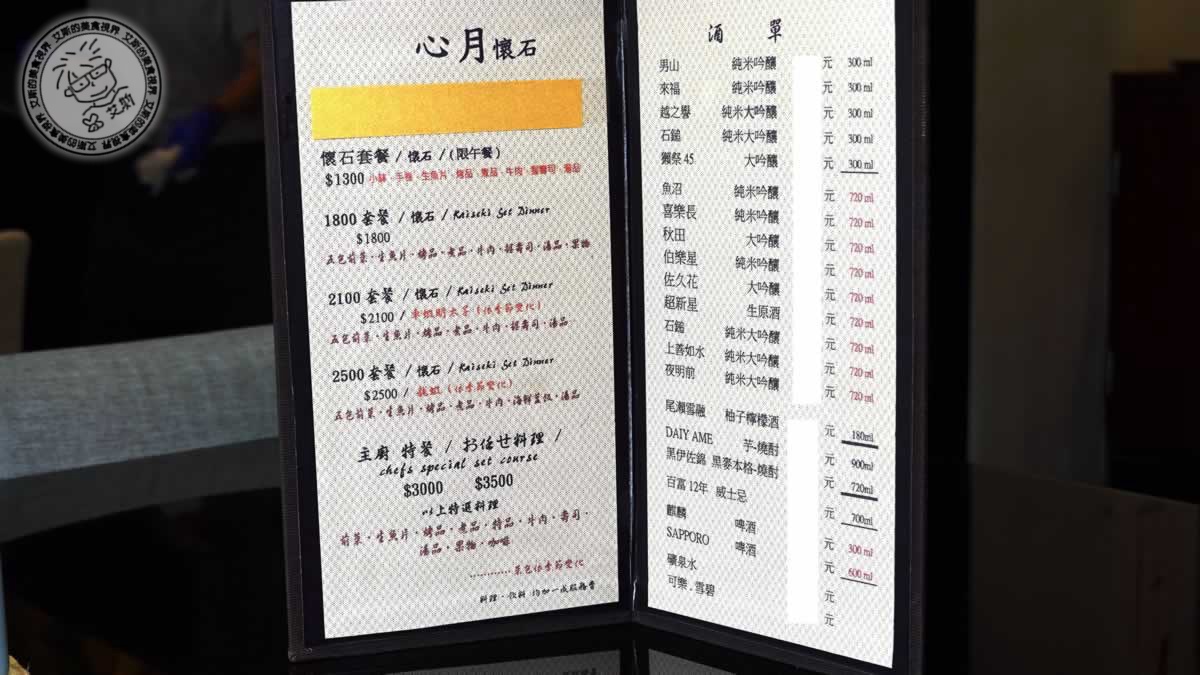 艾斯的美食視界 艾斯的美食視界 艾斯的美食視界 艾斯的美食視界
艾斯
心月懷石
懷石套餐 / 懷石 / (限午餐)
$1300 小缽．手卷．生魚片．烤品．煮品．牛肉．握壽司．湯品
1800 套餐 / 懷石 / Kaiseki Set Dinner
$1800
五色前菜．生魚片．烤品．煮品．牛肉．握壽司．湯品．果物
2100 套餐 / 懷石 / Kaiseki Set Dinner
$2100 / 車蝦明太子 (依季節變化)
五色前菜．生魚片．烤品．煮品．牛肉．握壽司．湯品
2500 套餐 / 懷石 / Kaiseki Set Dinner
$2500 / 龍蝦 (依季節變化)
五色前菜．生魚片．烤品．煮品．牛肉．海鮮釜飯．湯品
主廚 特餐 / お任せ料理 /
chefs special set course
$3000 $3500
以上特選料理
前菜．生魚片．烤品．煮品．特品．牛肉．壽司．
湯品．果物．咖啡
............菜色依季節變化
料理．飲料 均加一成服務費
酒 單
男山 純米吟釀 元 300 ml
來福 純米吟釀 元 300 ml
越之譽 純米大吟釀 元 300 ml
石鎚 純米大吟釀 元 300 ml
獺祭 45 大吟釀 元 300 ml
魚沼 純米吟釀 元 720 ml
喜樂長 純米吟釀 元 720 ml
秋田 大吟釀 元 720 ml
伯樂星 純米吟釀 元 720 ml
佐久花 大吟釀 元 720 ml
超新星 生原酒 元 720 ml
石鎚 純米大吟釀 元 720 ml
上善如水 純米大吟釀 元 720 ml
夜明前 純米大吟釀 元 720 ml
尾瀨雪融 柚子檸檬酒 元 180ml
DAIY AME 芋-燒酎 元 900ml
黑伊佐錦 黑麥本格-燒酎 元 720ml
百富 12年 威士忌 元 700ml
麒麟 啤酒 元 300 ml
SAPPORO 啤酒 元 600 ml
礦泉水 元
可樂 . 雪碧 元